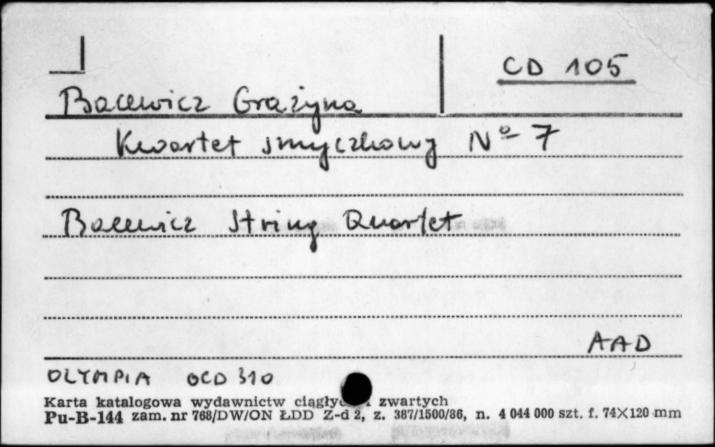 CD 105
Bacewicz Grażyna
Kwartet smyczkowy Nº 7
Bacewicz String Quartet
AAD
OLYMPIA OCD 310
Karta katalogowa wydawnictw zwartych
Pu-B-144 zam. nr 768/DW/ON ŁDD Z-d 2, z. 387/1500/86, n. 4 044 000 szt. f. 74×120 mm